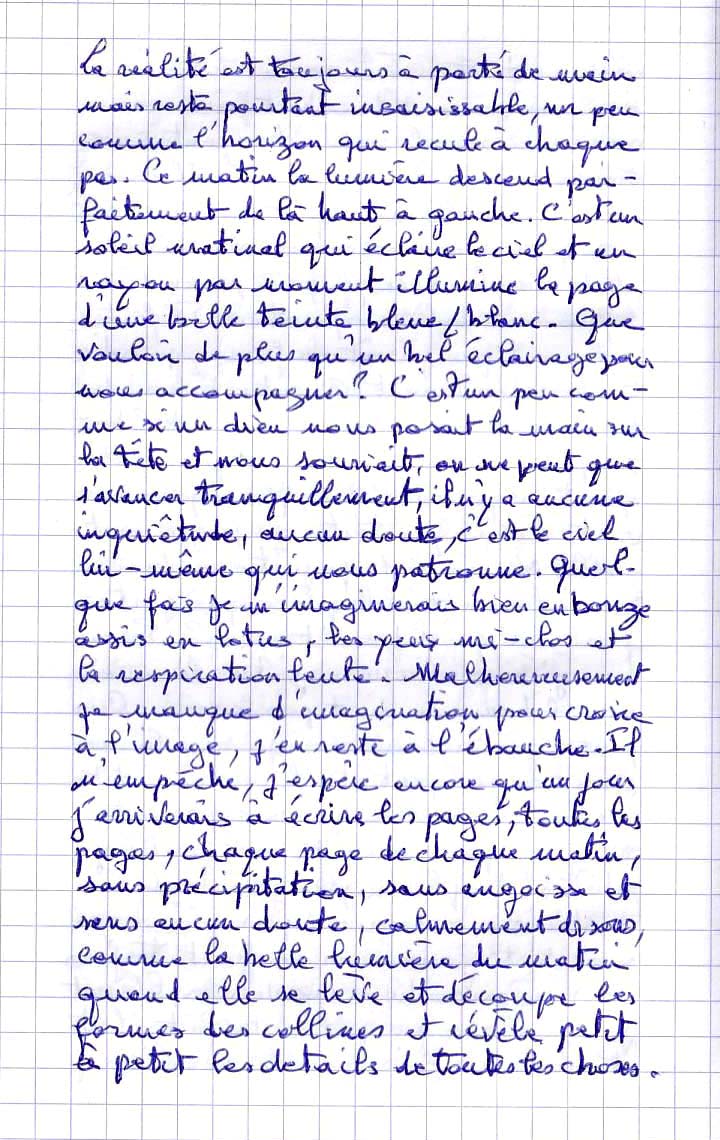 La réalité est toujours à porté de main
mais reste pourtant insaisissable, un peu
comme l'horizon qui recule à chaque
pas. Ce matin la lumière descend par-
faitement de là haut à gauche. C'est un
soleil matinal qui éclaire le ciel et un
rayon par moment illumine la page
d'une belle teinte bleue/blanc. Que
vouloir de plus qu'un bel éclairage pour
nous accompagner? C'est un peu com-
me si un dieu nous posait la main sur
la tête et nous souriait, on ne peut que
s'avancer tranquillement, il n'y a aucune
inquiêtude, aucun doute, c'est le ciel
lui-même qui nous patronne. Quel-
que fois je m'imaginerais bien en bonze
assis en lotus, les yeux mi-clos et
la respiration lente. Malheureusement
je manque d'imagination pour croire
à l'image, j'en reste à l'ébauche. Il
n'empêche, j'espère encore qu'un jour
j'arriverais à écrire les pages, toutes les
pages, chaque page de chaque matin,
sans précipitation, sans angoisse et
sans aucun doute, calmement disons,
comme la belle lumière du matin
quand elle se lève et découpe les
formes des collines et révèle petit
à petit les details de toutes les choses.